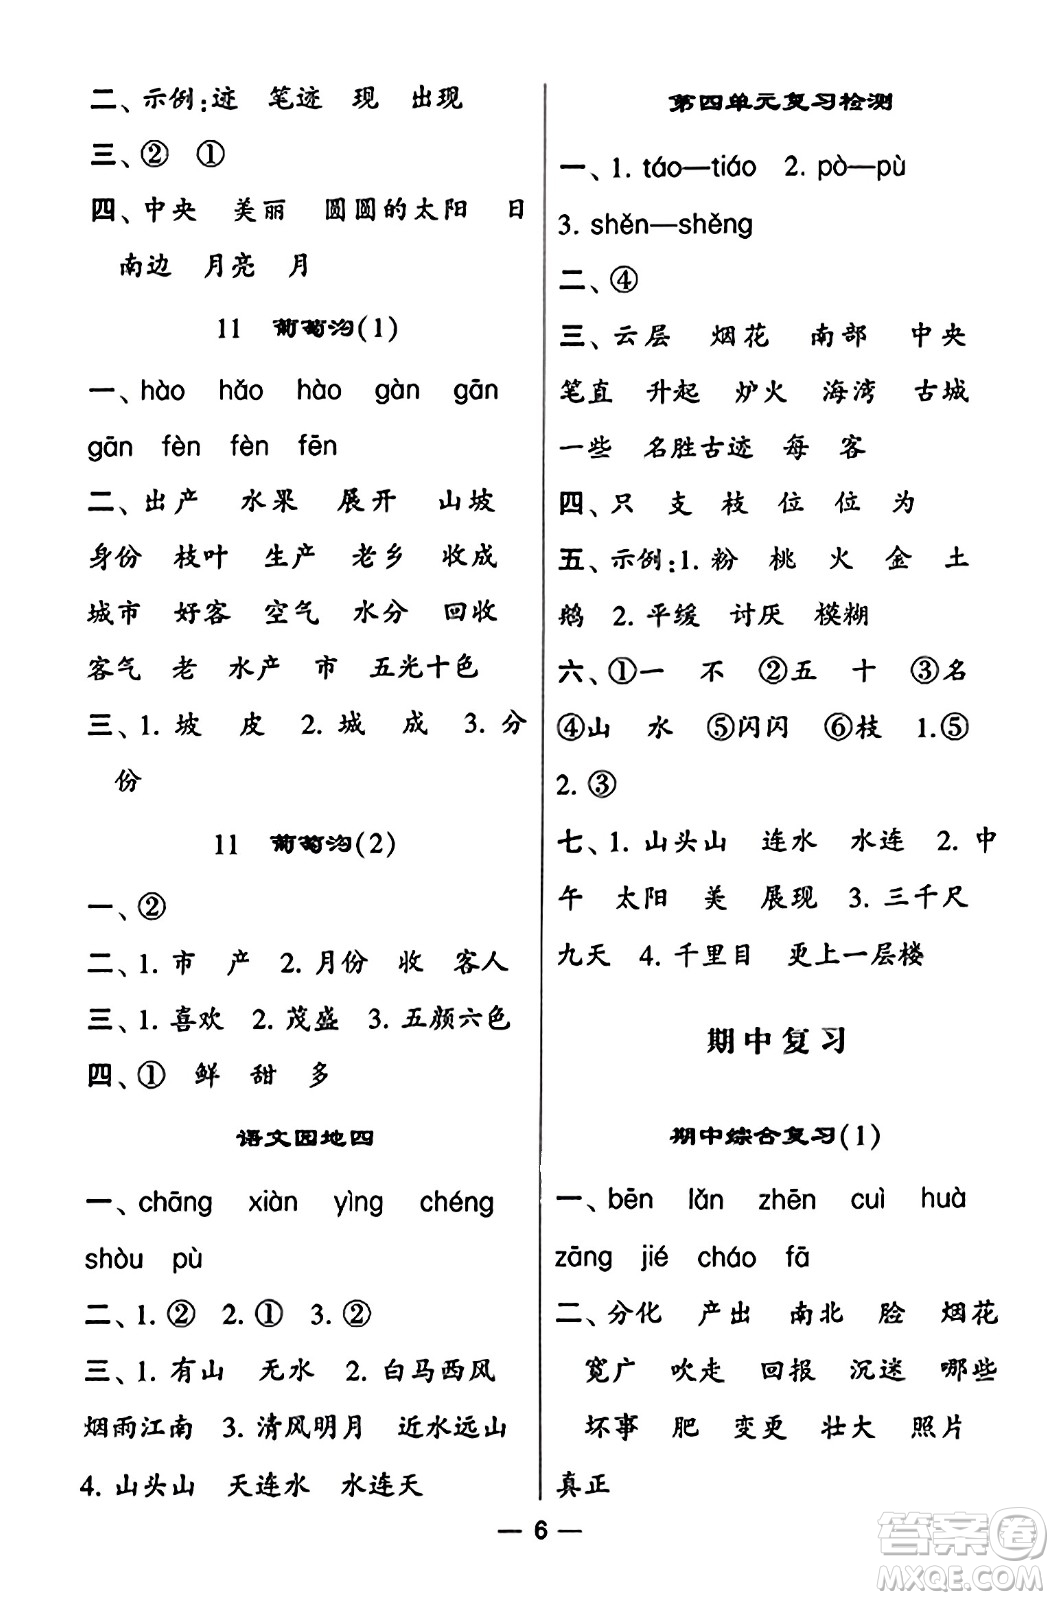 二、示例:迹 笔迹 现 出现
三、② ①
四、中央 美丽 圆圆的太阳 日
南边 月亮 月
11 葡萄沟(1)
一、hào hǎo hào gàn gān
gān fèn fèn fēn
二、出产 水果 展开 山坡
身份 枝叶 生产 老乡 收成
城市 好客 空气 水分 回收
客气 老 水产 市 五光十色
三、1. 坡 皮 2. 城 成 3. 分
份
11 葡萄沟(2)
一、②
二、1. 市 产 2. 月份 收 客人
三、1. 喜欢 2. 茂盛 3. 五颜六色
四、① 鲜 甜 多
语文园地四
一、chāng xiàn yìng chéng
shòu pù
二、1. ② 2. ① 3. ②
三、1. 有山 无水 2. 白马西风
烟雨江南 3. 清风明月 近水远山
4. 山头山 天连水 水连天
第四单元复习检测
一、1. táo—tiáo 2. pò—pù
3. shěn—shěng
二、④
三、云层 烟花 南部 中央
笔直 升起 炉火 海湾 古城
一些 名胜古迹 每 客
四、只 支 枝 位 位 为
五、示例:1. 粉 桃 火 金 土
鹅 2. 平缓 讨厌 模糊
六、①一 不 ②五 十 ③名
④山 水 ⑤闪闪 ⑥枝 1.⑤
2. ③
七、1. 山头山 连水 水连 2. 中
午 太阳 美 展现 3. 三千尺
九天 4. 千里目 更上一层楼
期中复习
期中综合复习(1)
一、bēn lǎn zhēn cuì huà
zāng jié cháo fā
二、分化 产出 南北 脸 烟花
宽广 吹走 回报 沉迷 哪些
坏事 肥 变更 壮大 照片
真正
— 6 —
答案圈
MXQE.COM